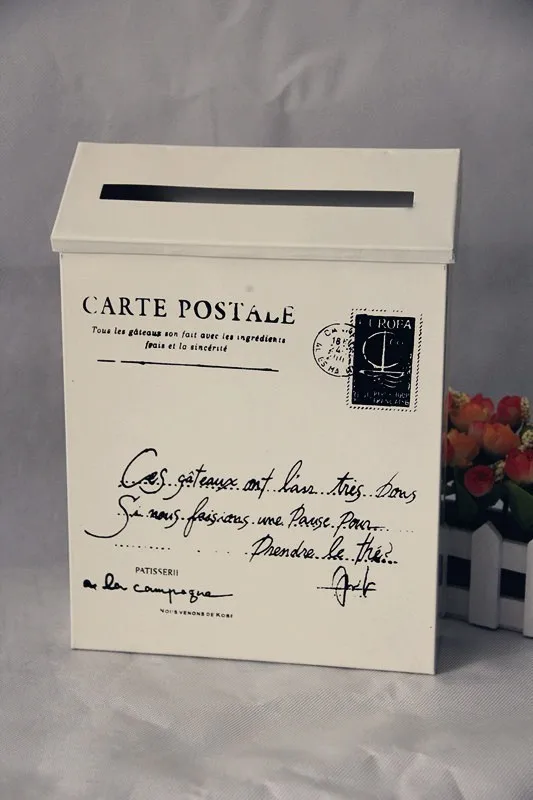 CARTE POSTALE
Tous les gâteaux son fait avec les ingrédients
frais et la sincérité
EUROPA
Ces gâteaux ont l'air très bons
Si nous faisions une Pause pour
Prendre le thé?
PATISSERII
a la campagne
NOUS VENONS DE KOBE